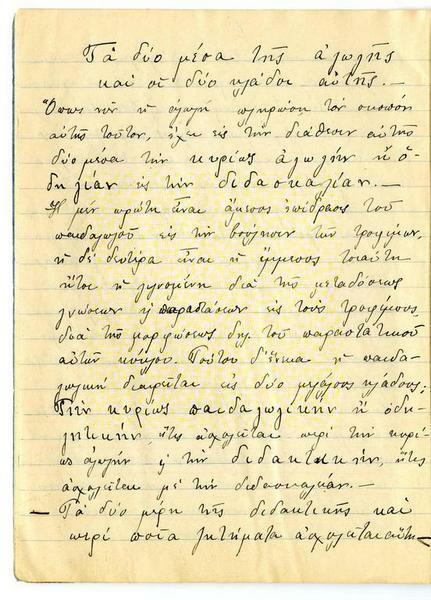 Τὰ δύο μέσα τῆς ἀγωγῆς
καὶ οἱ δύο κλάδοι αὐτῆς.—
Ὅπως νῦν ἡ ἀγωγὴ πληρώσῃ τὸν σκοπὸν
αὐτῆς τοῦτον, ἔχει εἰς τὴν διάθεσιν αὐτῆς
δύο μέσα τὴν κυρίως ἀγωγὴν ἢ ὁ-
δηγίαν εἰς τὴν διδασκαλίαν.—
Ἡ μὲν πρώτη εἶναι ἄμεσος ἐπίδρασις τοῦ
παιδαγωγοῦ εἰς τὴν βούλησιν τῶν τροφίμων,
ἡ δὲ δευτέρα εἶναι ἡ ἔμμεσος τοιαύτη
ἤτοι ἡ γινομένη διὰ τῆς μεταδόσεως
γνώσεων ἢ παραστάσεων εἰς τοὺς τροφίμους
διὰ τῆς μορφώσεως δηλ. τοῦ παραστατικοῦ
αὐτῶν κύκλου. Τούτου δ' ἕνεκα ἡ παιδα-
γωγικὴ διαιρεῖται εἰς δύο μεγάλους κλάδους:
Τὴν κυρίως παιδαγωγικὴν ἢ ὁδη-
γητικήν, ἥτις ἀσχολεῖται περὶ τὴν κυρί-
ως ἀγωγὴν ἢ τὴν διδακτικήν, ἥτις
ἀσχολεῖται μὲ τὴν διδασκαλίαν.—
— Τὰ δύο μέρη τῆς διδακτικῆς καὶ
περὶ ποῖα ζητήματα ἀσχολεῖται αὕτη—